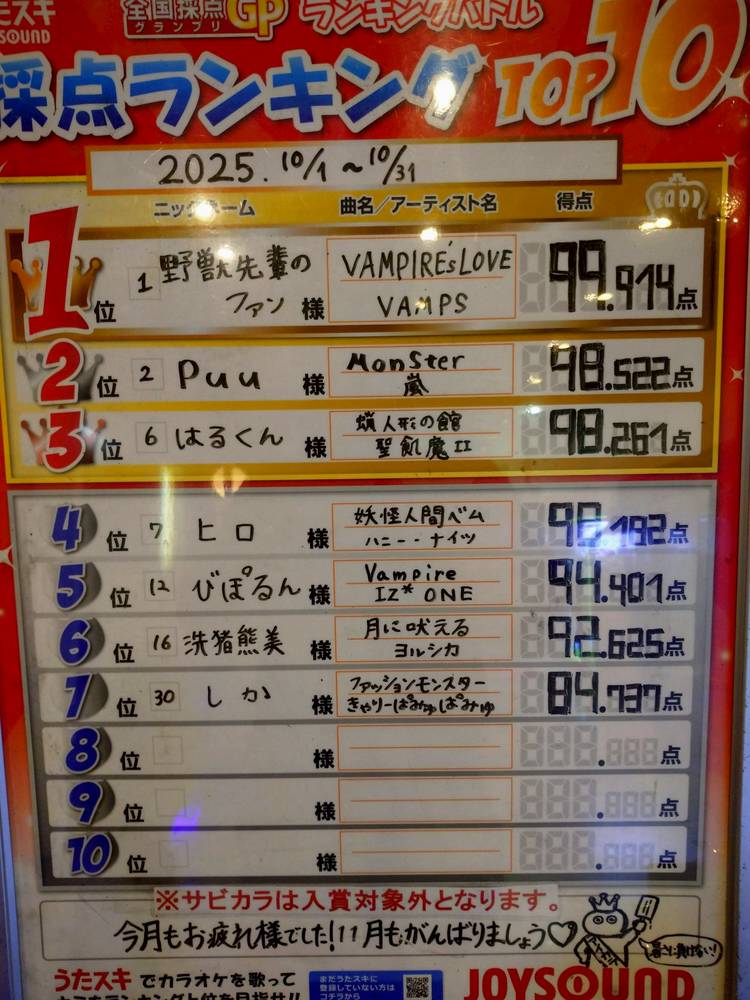 うたスキ 全国採点 GP ランキングバトル
SOUND グランプリ
採点ランキング TOP10
2025. 10/1 ~ 10/31
ニックネーム 曲名/アーティスト名 得点
1位 1 野獣先輩の VAMPIRE's LOVE 99.914点
ファン 様 VAMPS
2位 2 Puu 様 Monster 98.522点
嵐
3位 6 はるくん 様 蝋人形の館 98.261点
聖飢魔II
4位 7 ヒロ 様 妖怪人間ベム 98.192点
ハニー・ナイツ
5位 12 びぽるん 様 Vampire 94.401点
IZ*ONE
6位 16 洗猪熊美 様 月に吠える 92.625点
ヨルシカ
7位 30 しか 様 ファッションモンスター 84.737点
きゃりーぱみゅぱみゅ
8位 様 点
9位 様 点
10位 様 点
※サビカラは入賞対象外となります。
今月もお疲れ様でした!11月もがんばりましょう♡
暑さに負けない!
うたスキでカラオケを歌って
まだうたスキに
登録していない方は
コチラから
JOYSOUND